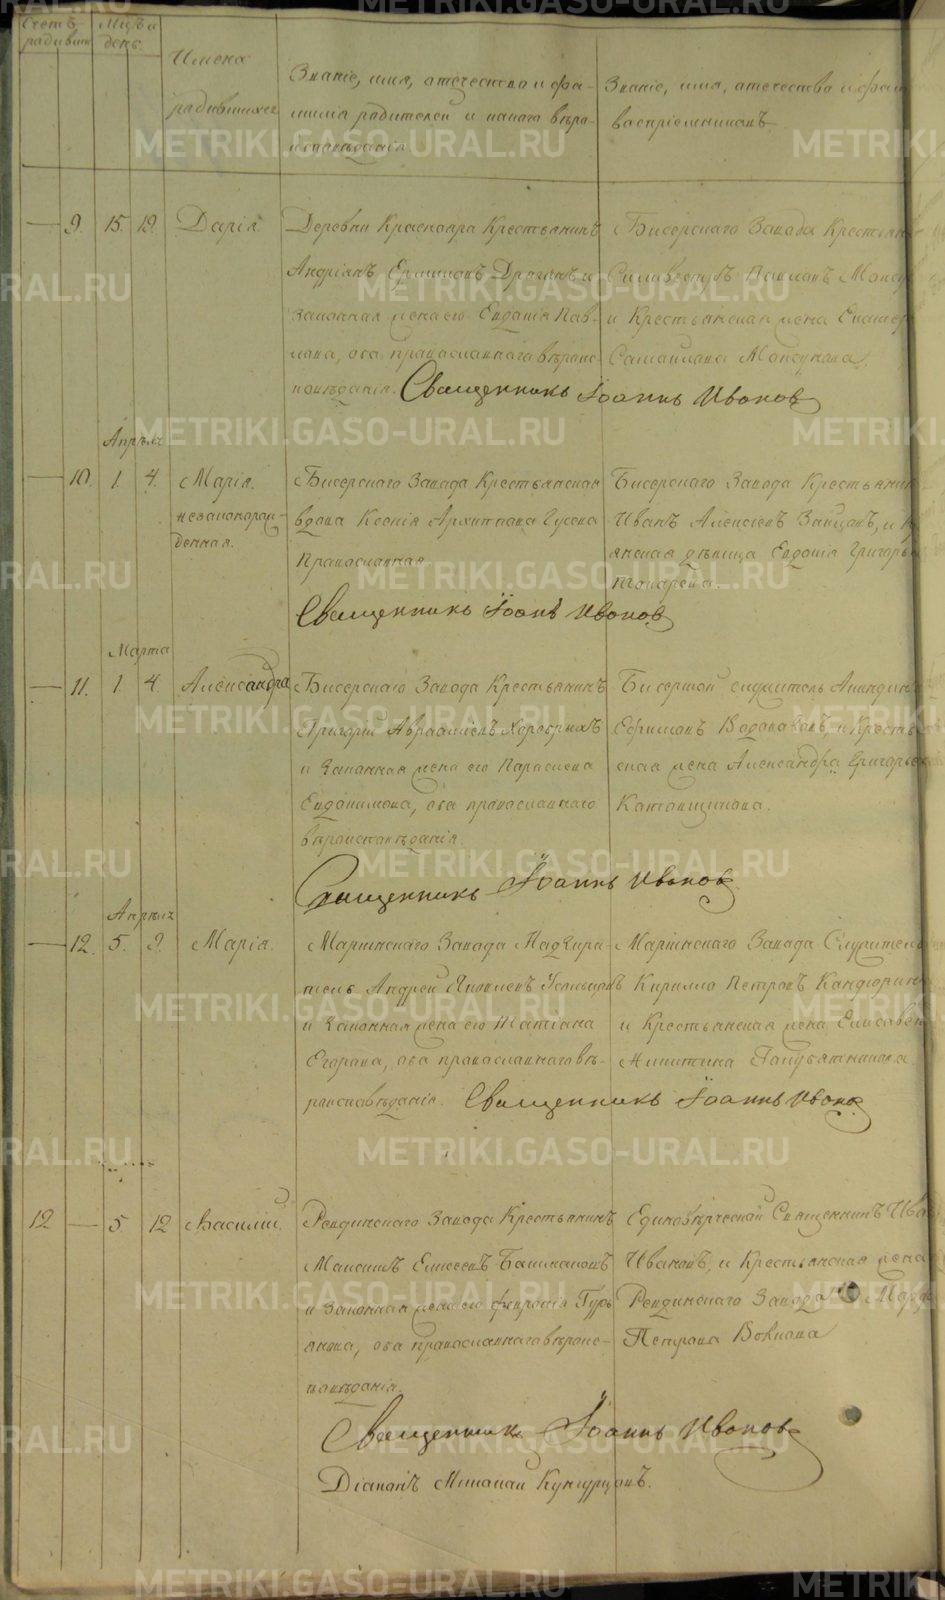 Счетъ родившихся
Мѣсяцъ и день
Имена родившихся
Званіе, имя, отечество и фа-
милія родителей и какого вѣро-
исповѣданія
Званіе, имя, отечество и фам
воспріемниковъ
9. 15. 19. Дарія.
Деревни Краснояра Крестьянинъ
Андріянъ Ермиловъ Дрягинъ и
законная жена его Евдокія Пав-
лова, оба православнаго вѣроис-
повѣданія. Священникъ Іоаннъ Ивановъ
Бисерскаго Завода Крестьян
Силивестръ Павловъ Мокеу
и Крестьянская жена Екатер
Самайлова
Апрѣля
10. 1. 4. Марія.
незаконорож-
денная.
Бисерскаго Завода Крестьянская
вдова Ксенія Архиппова Гусева
Православная
Священникъ Іоаннъ Ивановъ
Бисерскаго Завода Крестьянин
Иванъ Алексѣевъ Зайцовъ, и
янская дѣвица Евдокія Григорье
Токарева.
Марта
11. 1. 4. Александра
Бисерскаго Завода Крестьянинъ
Григорій Авраамієвъ Хоробрыхъ
и Законная жена его Параскева
Евдокимова, оба православнаго
вѣроисповѣданія.
Священникъ Іоаннъ Ивановъ
Бисерской служитель
Ефимовъ Водолавовъ, и Кресть
ская жена Александра Григорьев
Катанщикова.
Апрѣля
12. 5. 9. Марія.
Маріинскаго Завода Надзира-
тель Андрей Яковлевъ Усольцовъ
и Законная жена его Татіана
Егорова, оба православнаго вѣ-
роисповѣданія. Священникъ Іоаннъ Ивановъ
Маріинскаго Завода Служитель
Кирилло Петровъ Кандюрин
и Крестьянская жена Елисавет
Никитина Голубятникова.
12 5 12 Василій.
Ревдинскаго Завода Крестьянинъ
Максимъ Елисеевъ Башмаковъ
и Законная жена его Февронія Гурь
янова, оба православнаго вѣроис-
повѣданія.
Священникъ Іоаннъ Ивановъ
Діаконъ Михаилъ Кунгурцовъ.
Единовѣрческой Священникъ Ива
Ивановъ, и Крестьянская жена
Ревдинскаго Завода Марѳа
Петрова Волкова
METRIKI.GASO-URAL.RU